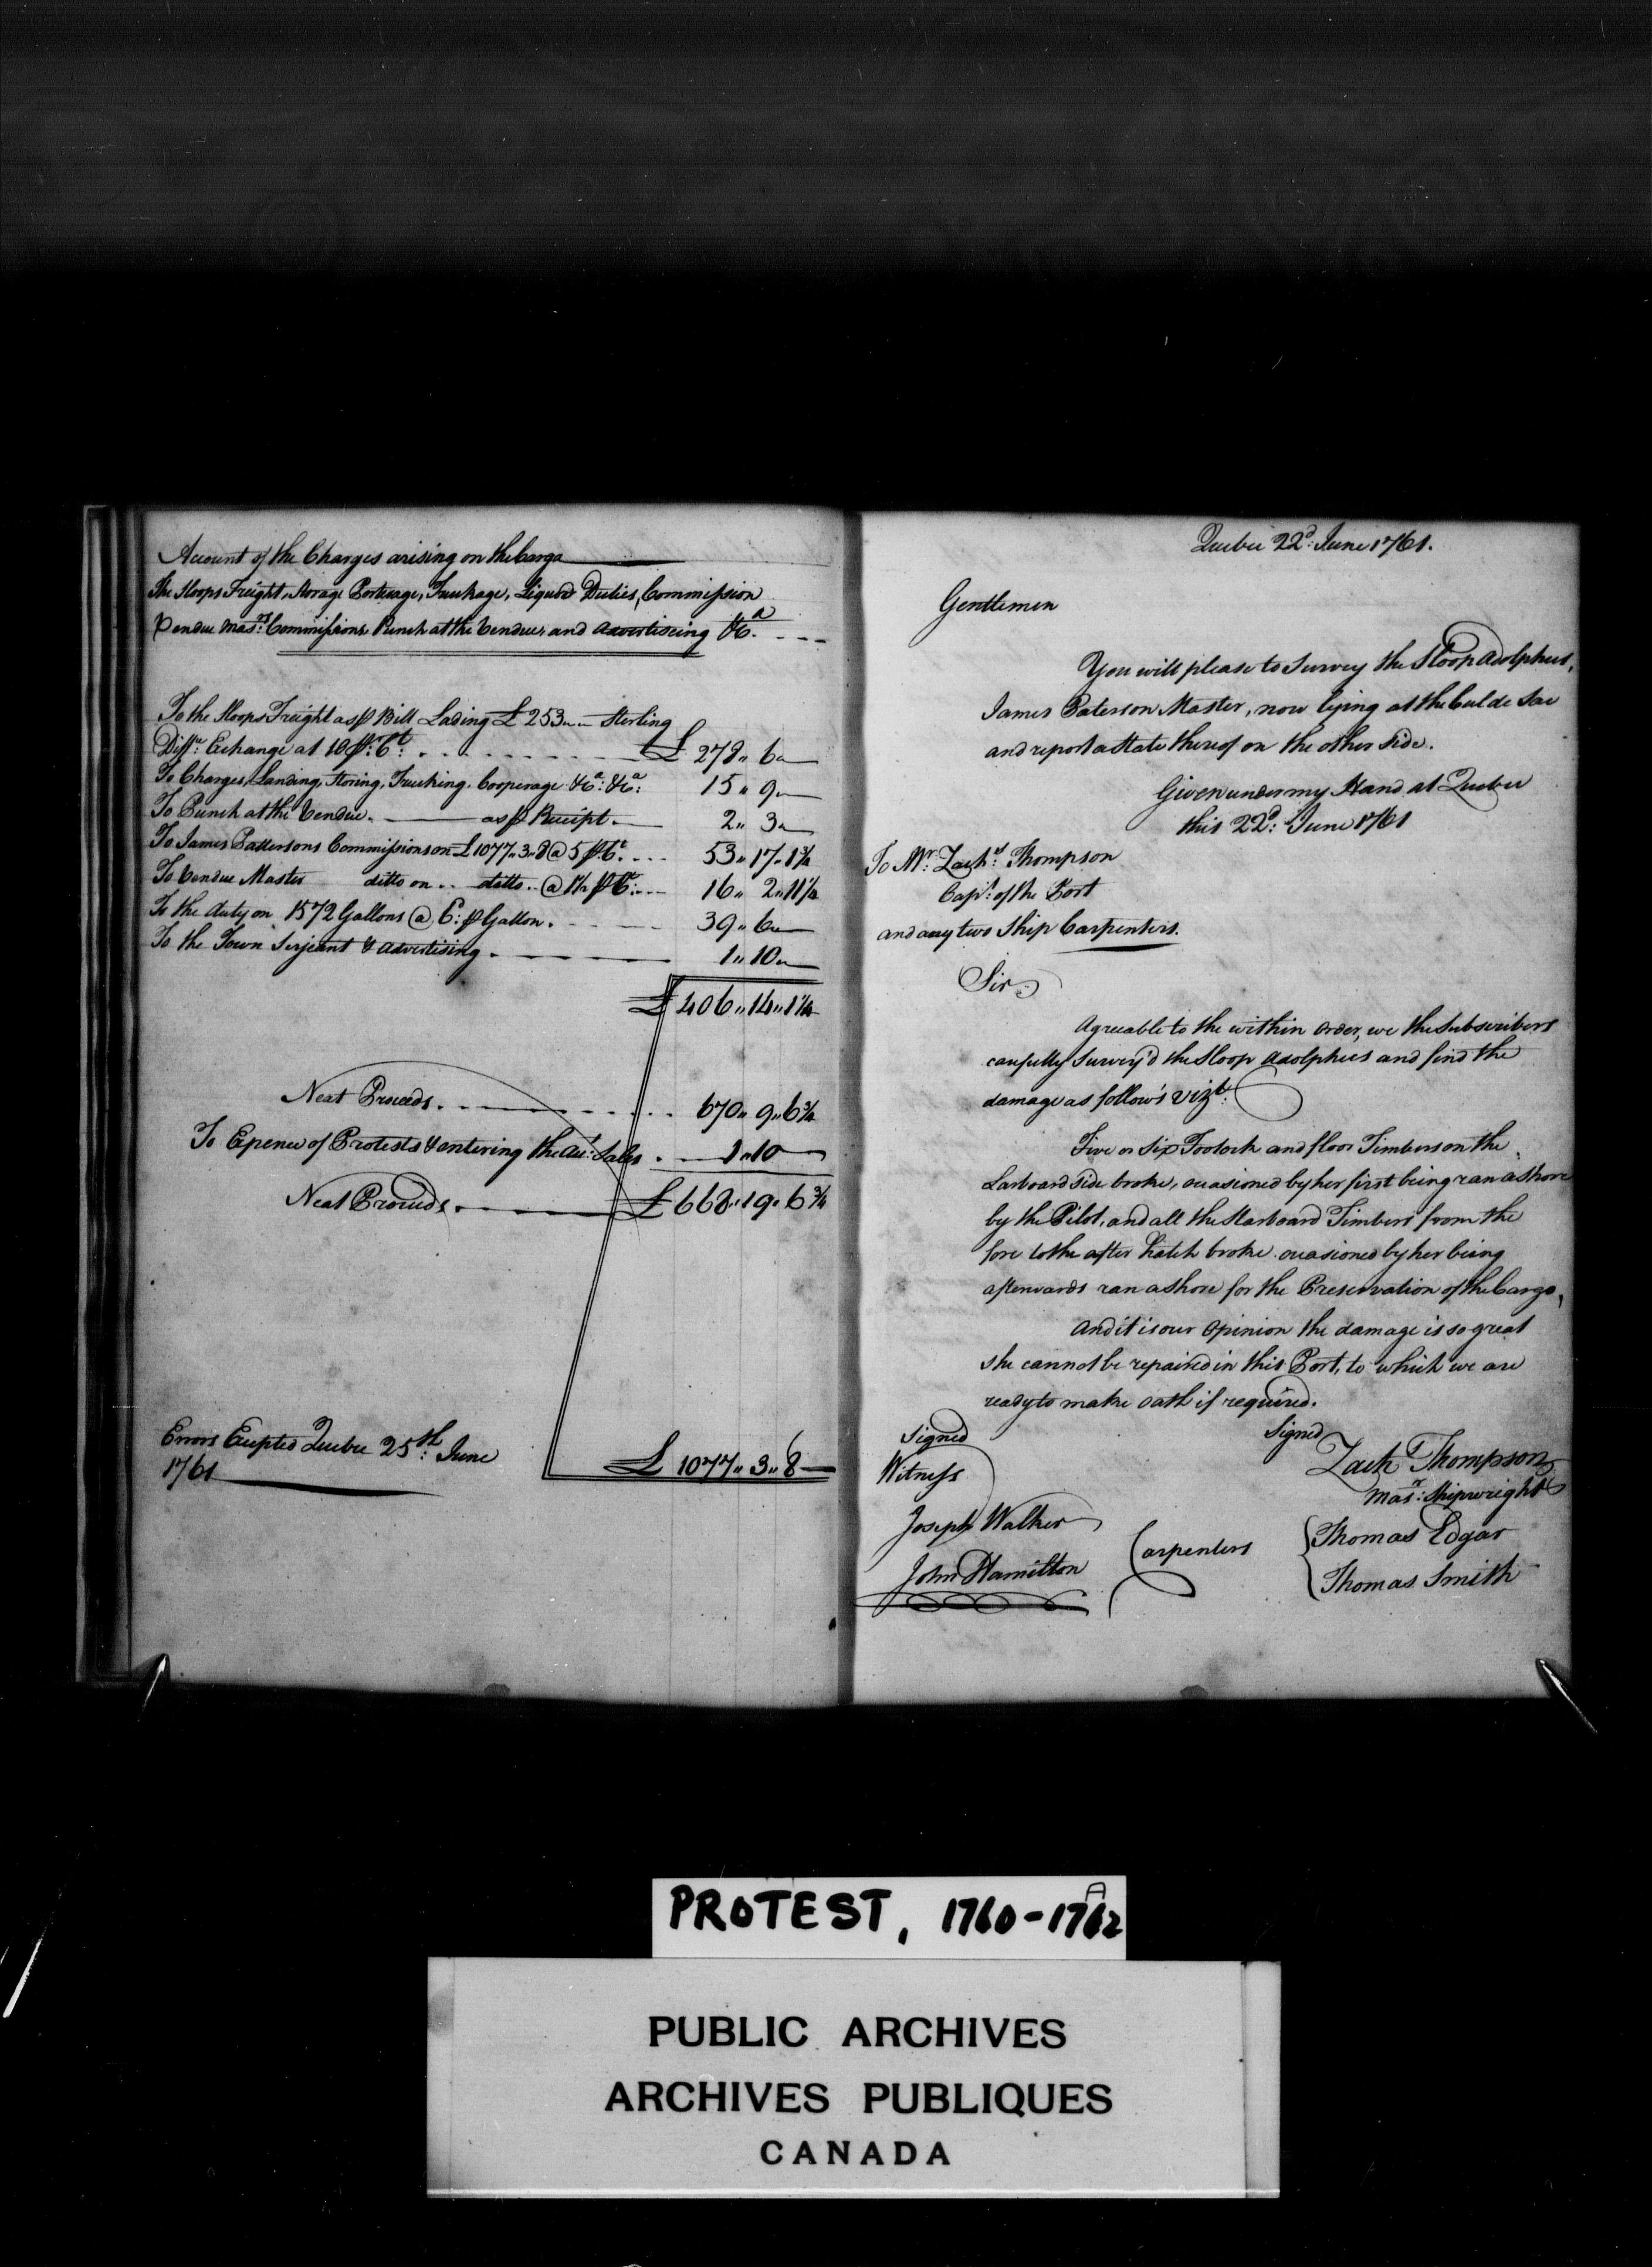 Account of the Charges arising on the Cargo
The Sloops Freight, Storage Porterage, Truckage, Liquor Duties, Commission
Vendue Masrs: Commissions Punch at the Vendues and Advertiseing &Ca. - - -
To the Sloops Freight as ⅌ Bill Lading £ 253 „ „ Sterling
Diffce Exchange at 10 ⅌r: Ct: . . . . . . . . £ 278 „ 6 „ —
To Charges, Landing, Storing, Trucking, Cooperage &Ca: &Ca: 15 „ 9 „ —
To Punch at the Vendue. — as ⅌ Receipt. — 2 „ 3 „ —
To James Pattersons Commissions on £1077 „ 3 „ 8 @ 5 ⅌r Ct. . . . 53 „ 17 „ 1¾
To Vendue Master ditto on . . ditto . . @ 1½ ⅌ Ct: . . . 16 „ 2 „ 11½
To the duty on 1572 Gallons @ 6: ⅌ Gallon. - - - 39 „ 6 „ —
To the Town Serjeant & advertising. — — — 1 „ 10 „ —
£ 406 „ 14 „ 1¼
Neat Proceeds. - - - - . . . 670 „ 9 „ 6¾
To Expence of Protests & entering the Acct: Sales . — 1 „ 10 —
Neat Proceeds. — — £ 668 „ 19 „ 6¾
Errors Excepted Quebec 25th: June
1761
£ 1077 „ 3 „ 8 —
Quebec 22d: June 1761.
Gentlemen
You will please to Survey the Sloop Adolphus,
James Paterson Master, now lying at the Cul de Sac
and report a State thereof on the other side.
Given under my Hand at Quebec
this 22d: June 1761
To Mr: Zachy Thompson
Capt: of the Port
and any two Ship Carpenters.
Sir
Agreeable to the within Order, we the Subscribers
carefully Survey'd the Sloop Adolphus and find the
damage as follow's Vizt:
Five or Six Footock and floor Timbers on the
Larboard side broke, occasioned by her first being ran ashore
by the Pilot, and all the Starboard Timbers from the
fore to the after hatch broke occasioned by her being
afterwards ran ashore for the Preservation of the Cargo,
And it is our Opinion the damage is so great
she cannot be repaired in this Port, to which we are
ready to make Oath if required.
Signed Signed
Witness Zach Thompson
Masr: Shipwright
Joseph Walker Thomas Edgar
John Hamilton Carpenters Thomas Smith
PROTEST, 1760-1762
PUBLIC ARCHIVES
ARCHIVES PUBLIQUES
CANADA